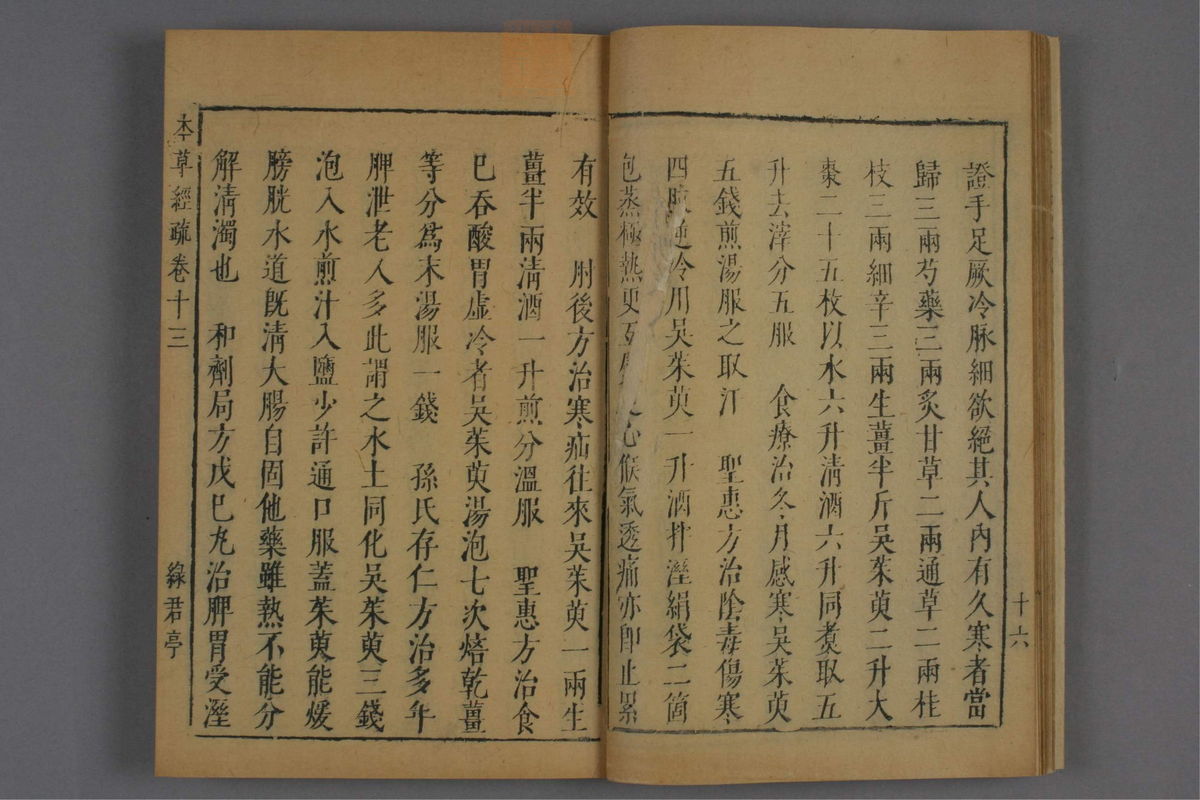 十六
證手足厥冷脉細欲絕其人內有久寒者當
歸三兩芍藥三兩炙甘草二兩通草二兩桂
枝三兩細辛三兩生薑半斤吳茱萸二升大
棗二十五枚以水六升清酒六升同煑取五
升去滓分五服　食療治冬月感寒吳茱萸
五錢煎湯服之取汗　聖惠方治陰毒傷寒
四肢逆冷用吳茱萸一升酒拌溼絹袋二箇
包蒸極熱更互心候氣透痛亦即止累
有效　肘後方治寒疝往來吳茱萸一兩生
薑半兩清酒一升煎分溫服　聖惠方治食
巳吞酸胃虛冷者吳茱萸湯泡七次焙乾薑
等分爲末湯服一錢　孫氏存仁方治多年
脾泄老人多此謂之水土同化吳茱萸三錢
泡入水煎汁入鹽少許通口服蓋茱萸能煖
膀胱水道旣淸大腸自固他藥雖熱不能分
解清濁也　和劑局方戊巳丸治脾胃受溼
本草經疏卷十三
綠君亭